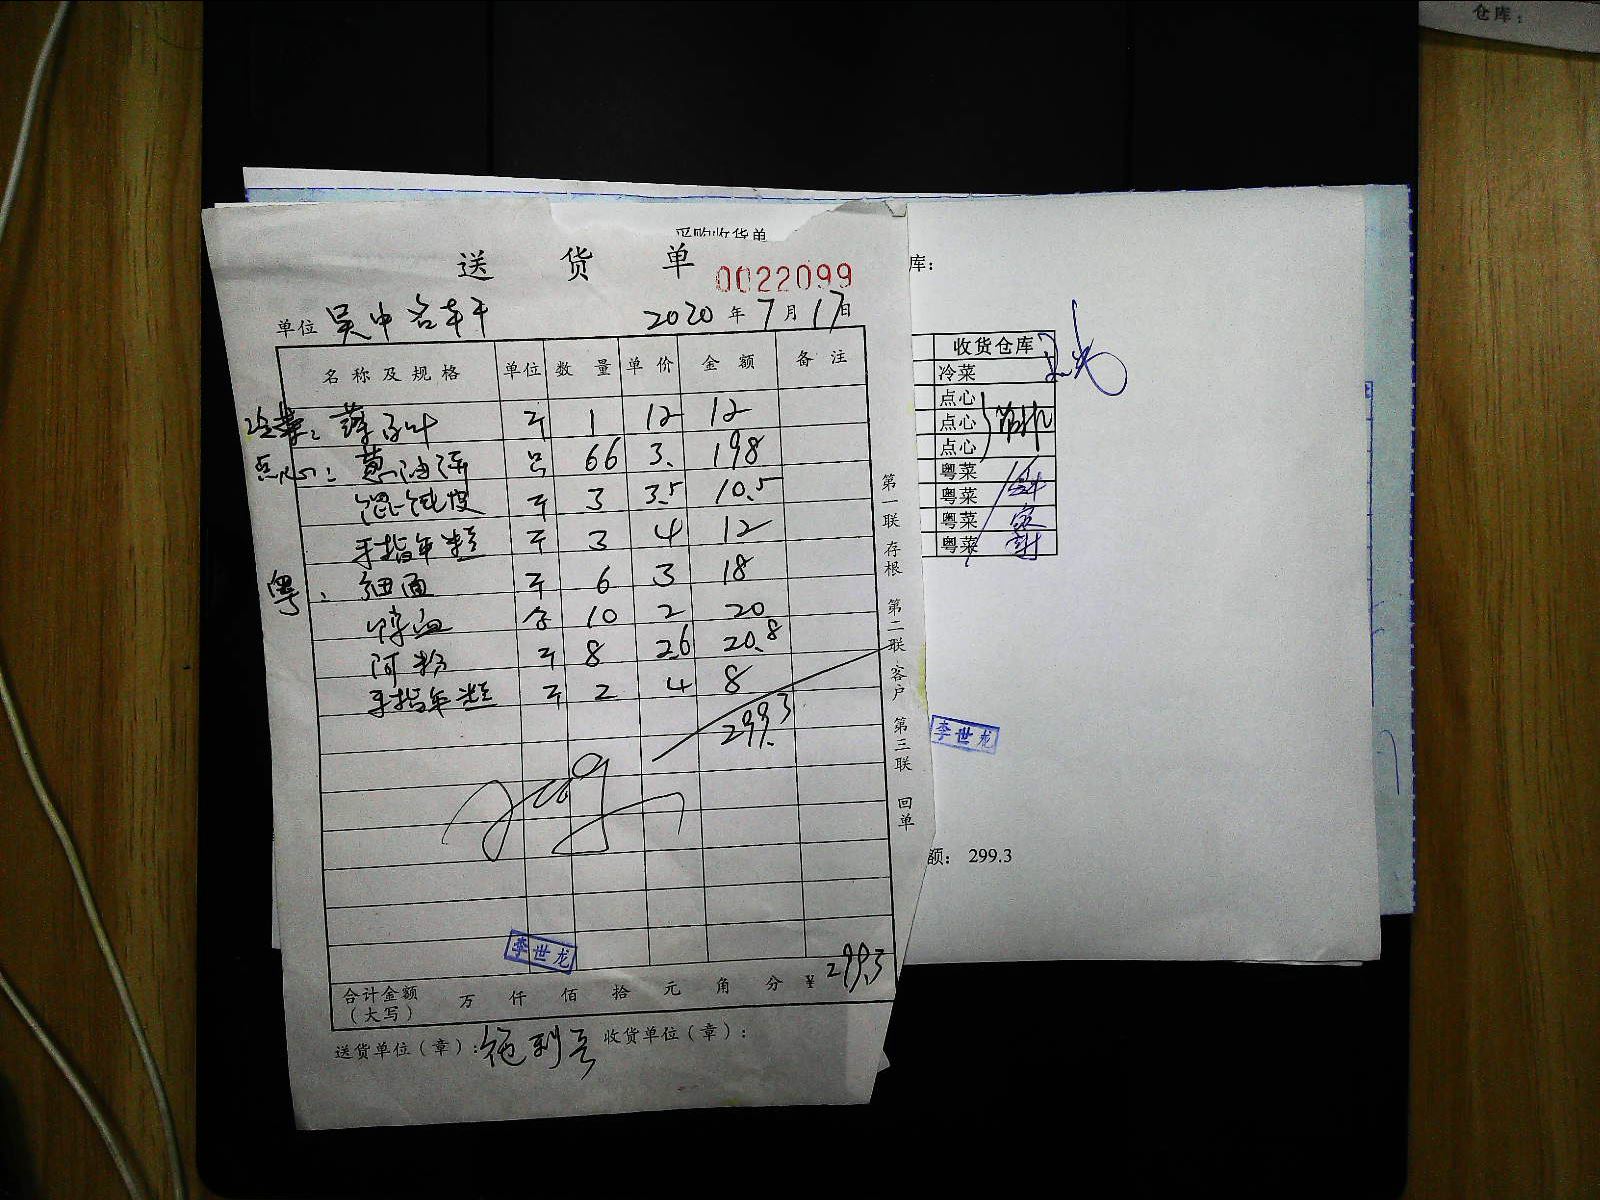 仓库：
采购收货单
送货单
0022099
库：
单位 吴中名轩 2020年7月17日
名称及规格 单位 数量 单价 金额 备注
冷菜： 1 12 12
点心： 葱油饼 只 66 3. 198
馄饨皮 斤 3 3.5 10.5
手指年糕 斤 3 4 12
粤： 细面 斤 6 3 18
鸭血 盒 10 2 20
河粉 斤 8 2.6 20.8
手指年糕 斤 2 4 8
299.3
李世龙
合计金额（大写） 万 仟 佰 拾 元 角 分 ¥ 299.3
送货单位（章）： 收货单位（章）：
第一联 存根 第二联 客户 第三联 回单
收货仓库
冷菜
点心
点心
点心
粤菜
粤菜
粤菜
粤菜
李世龙
额： 299.3